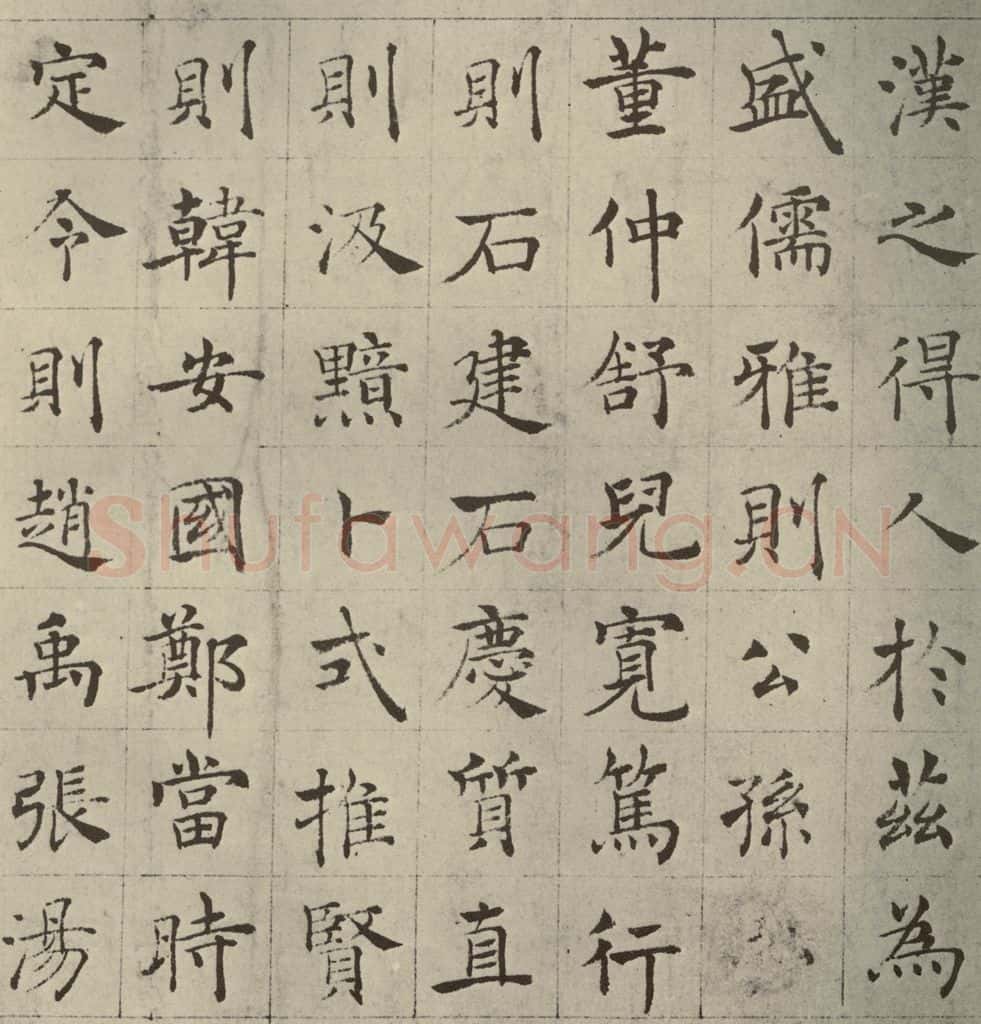 漢之得人於茲為
盛儒雅則公孫
董仲舒兒寬篤行
則石建石慶質直
則汲黯卜式推賢
則韓安國鄭當時
定令則趙禹張湯
Shufawang.CN